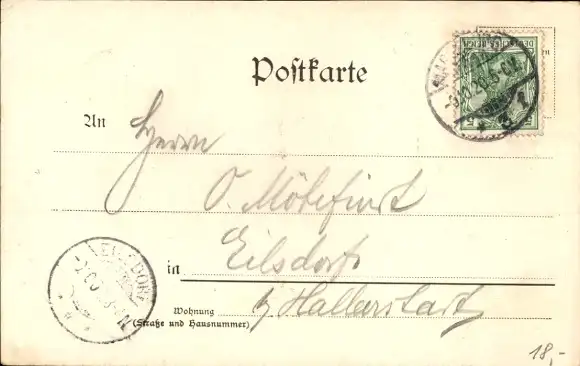 Postkarte
An Herrn
O. Mötefindt
in Eilsdorf
Wohnung
(Straße und Hausnummer)
b/ Halberstadt
EILSDORF
18,-